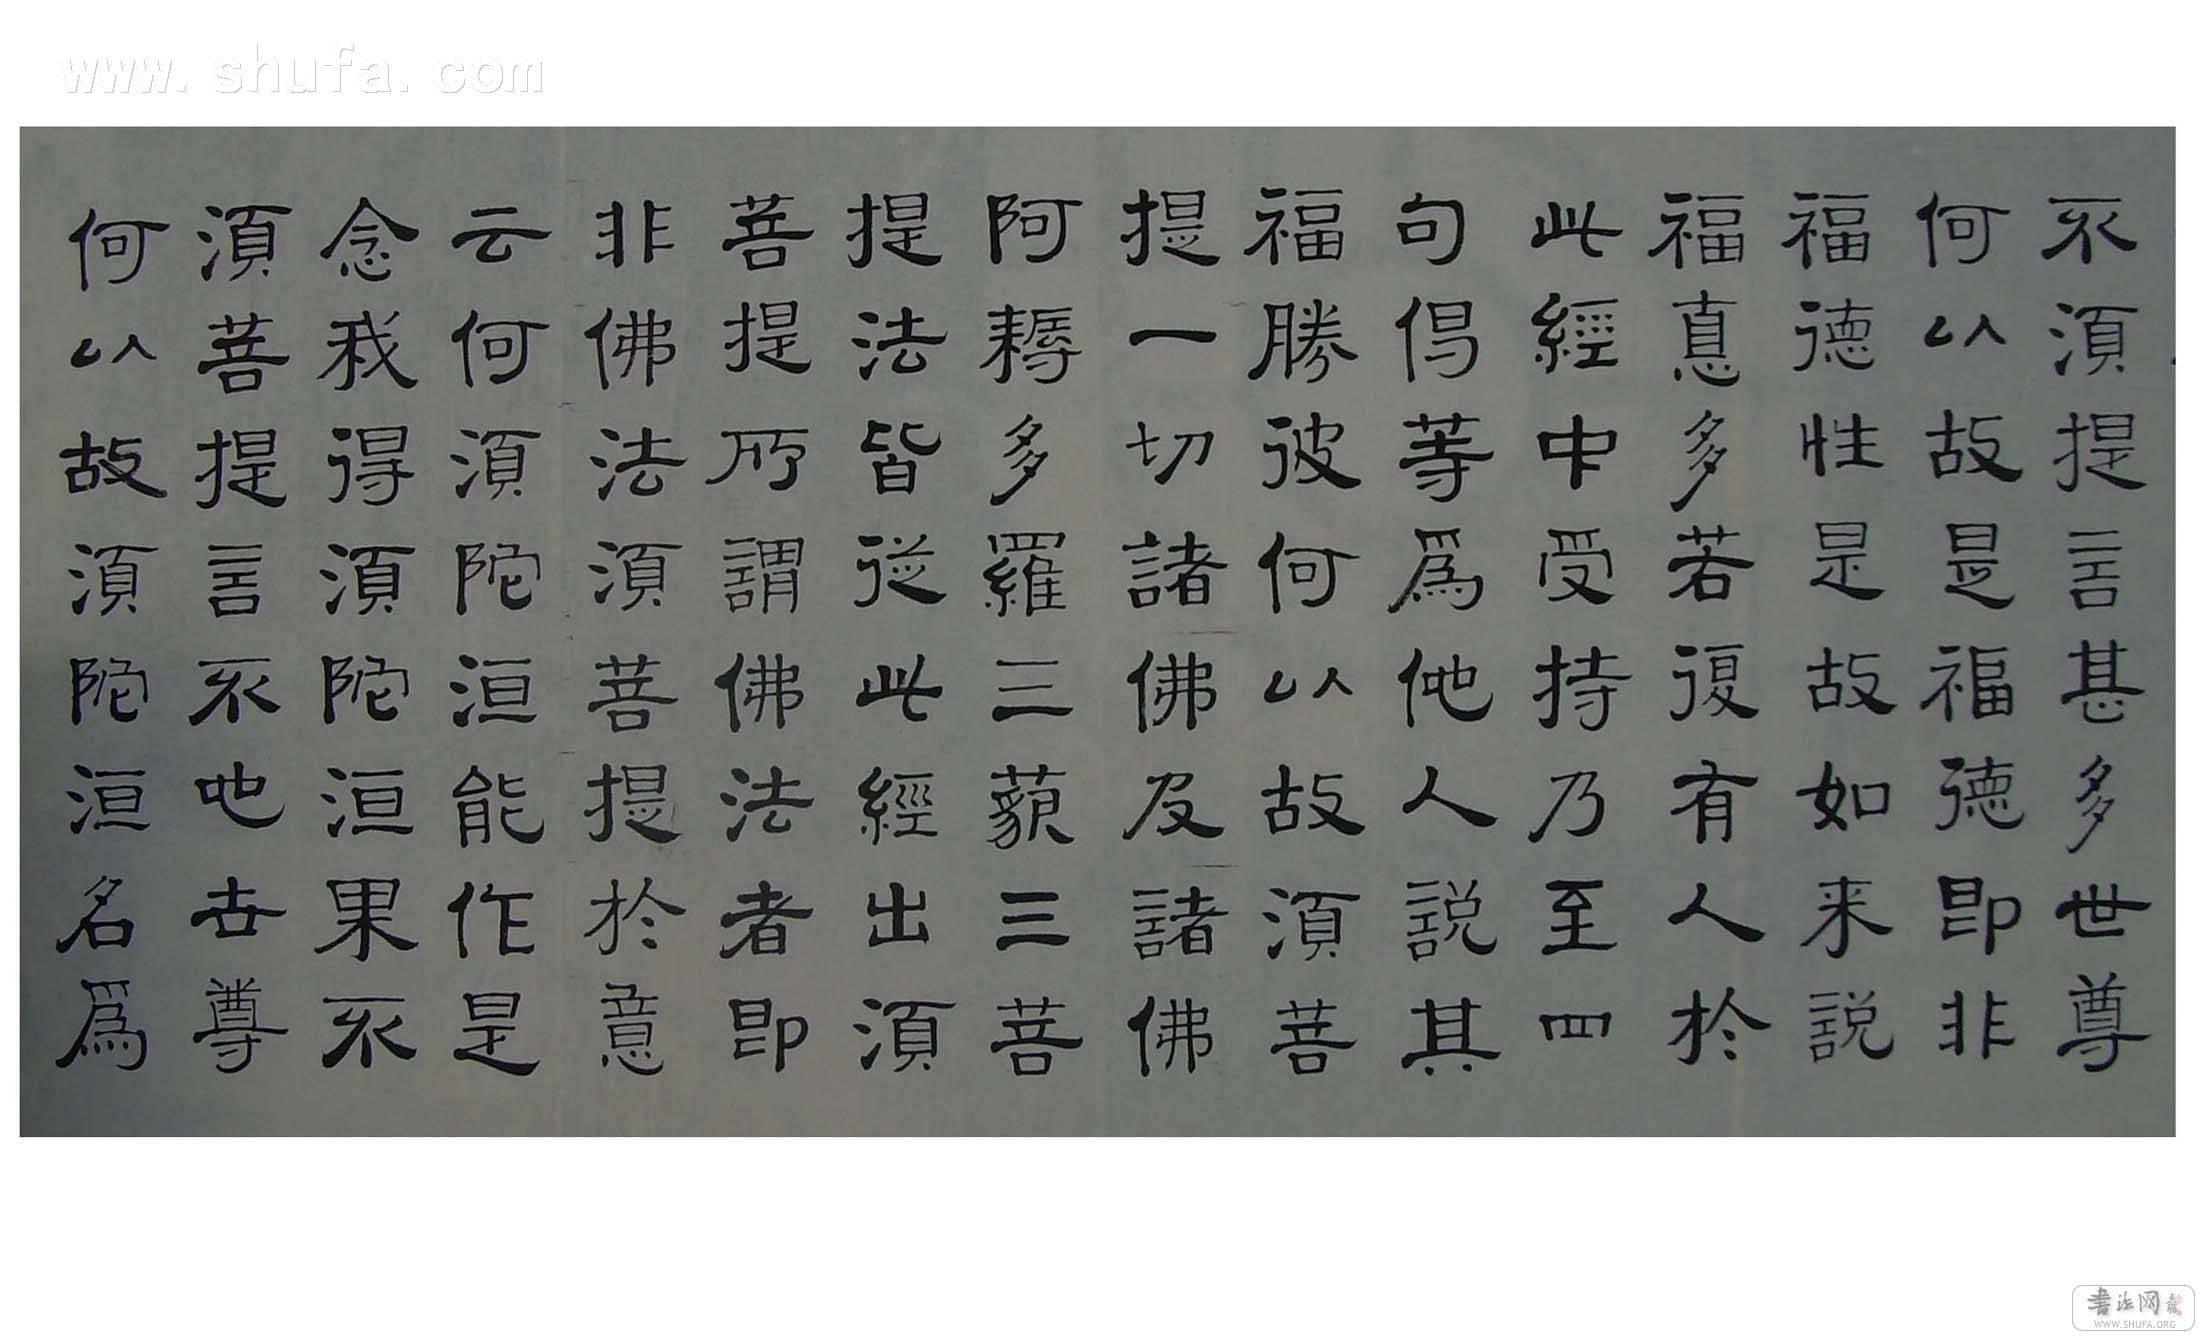 www.shufa.com
不須提言甚多世尊
何以故是福德即非
福德性是故如来説
福悳多若復有人於
此經中受持乃至四
句偈等爲他人説其
福勝彼何以故須菩
提一切諸佛及諸佛
阿耨多羅三藐三菩
提法皆從此經出須
菩提所謂佛法者即
非佛法須菩提於意
云何須陀洹能作是
念我得須陀洹果不
須菩提言不也世尊
何以故須陀洹名爲
书法网
WWW.SHUFA.ORG